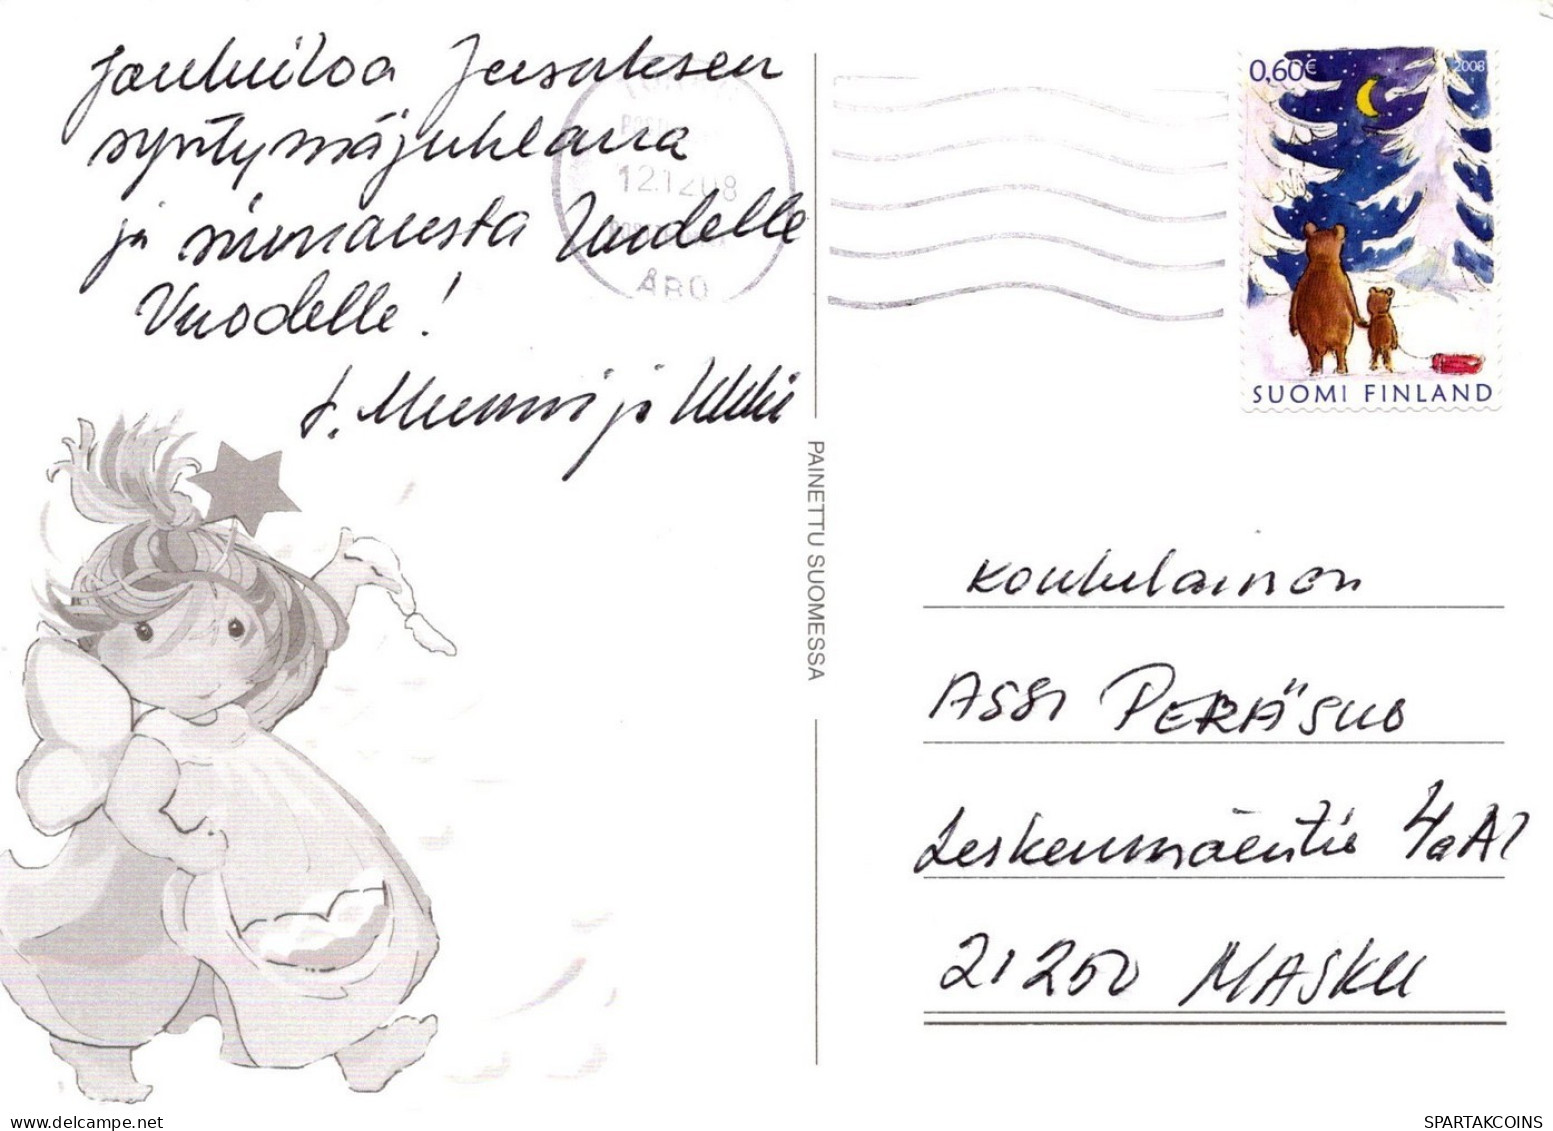 Jouluiloa Jeesuksen
syntymäjuhlana
ja siunausta Uudelle
Vuodelle!
t. Mummi ja Ukki
12.12.08
ÅBO
0,60€ 2008
SUOMI FINLAND
PAINETTU SUOMESSA
Koululainen
ASSI PERÄSUO
Leskenmäentie 4a A2
21250 MASKU
SPARTAKCOINS